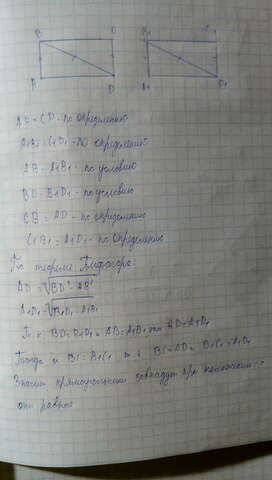 B C B₁ C₁
A D A₁ D₁
AB = CD - по определению
A₁B₁ = C₁D₁ - по определению
AB = A₁B₁ - по условию
BD = B₁D₁ - по условию
CB = AD - по определению
C₁B₁ = A₁D₁ - по определению
По теореме Пифагора:
AD = √BD² - AB²
A₁D₁ = √B₁D₁ - A₁B₁
Т.к. BD = B₁D₁ и AB = A₁B₁ то AD = A₁D₁
Тогда и BC = B₁C₁ т.к BC = AD и B₁C₁ = A₁D₁
Значит прямоугольники совпадут при наложении
они равны